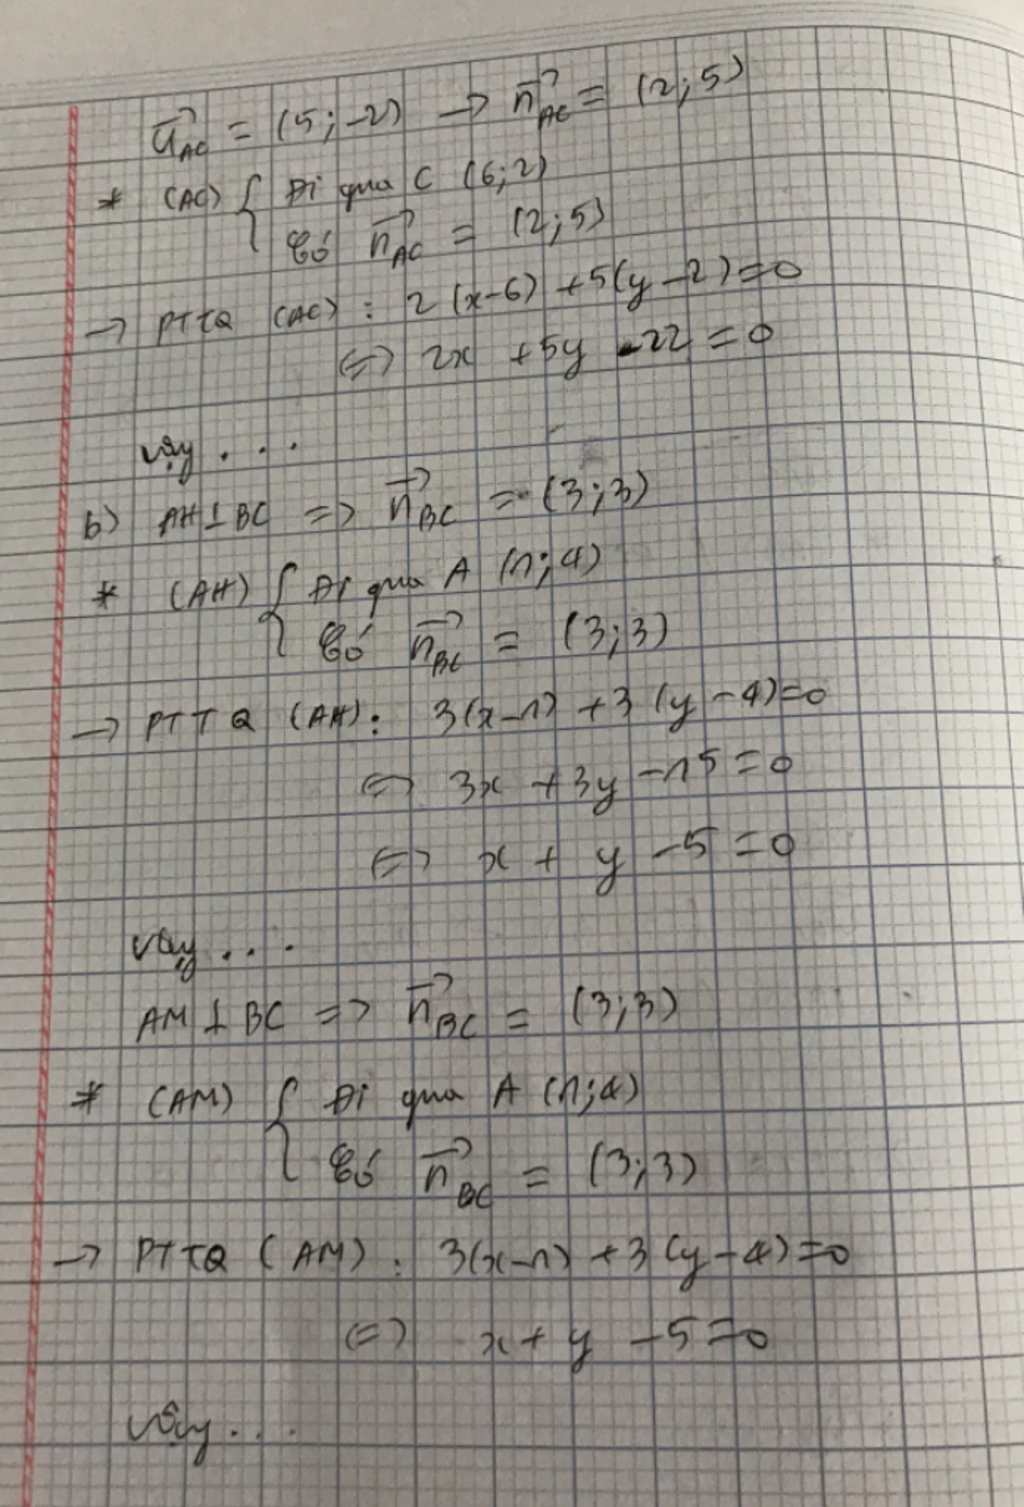 u⃗AC = (5; -2) → n⃗AC = (2; 5)
* (AC) { Đi qua C (6; 2)
Có n⃗AC = (2; 5)
→ PTTQ (AC) : 2 (x-6) + 5(y-2) = 0
⇔ 2x + 5y - 22 = 0
Vậy . . .
b) AH ⊥ BC => n⃗BC = (3; 3)
* (AH) { Đi qua A (1; 4)
Có n⃗BC = (3; 3)
→ PTTQ (AH): 3(x-1) + 3 (y-4) = 0
⇔ 3x + 3y - 15 = 0
⇔ x + y - 5 = 0
Vậy . . .
AM ⊥ BC => n⃗BC = (3; 3)
* (AM) { Đi qua A (1; 4)
Có n⃗BC = (3; 3)
→ PTTQ (AM) : 3(x-1) + 3 (y-4) = 0
⇔ x + y - 5 = 0
Vậy . . .